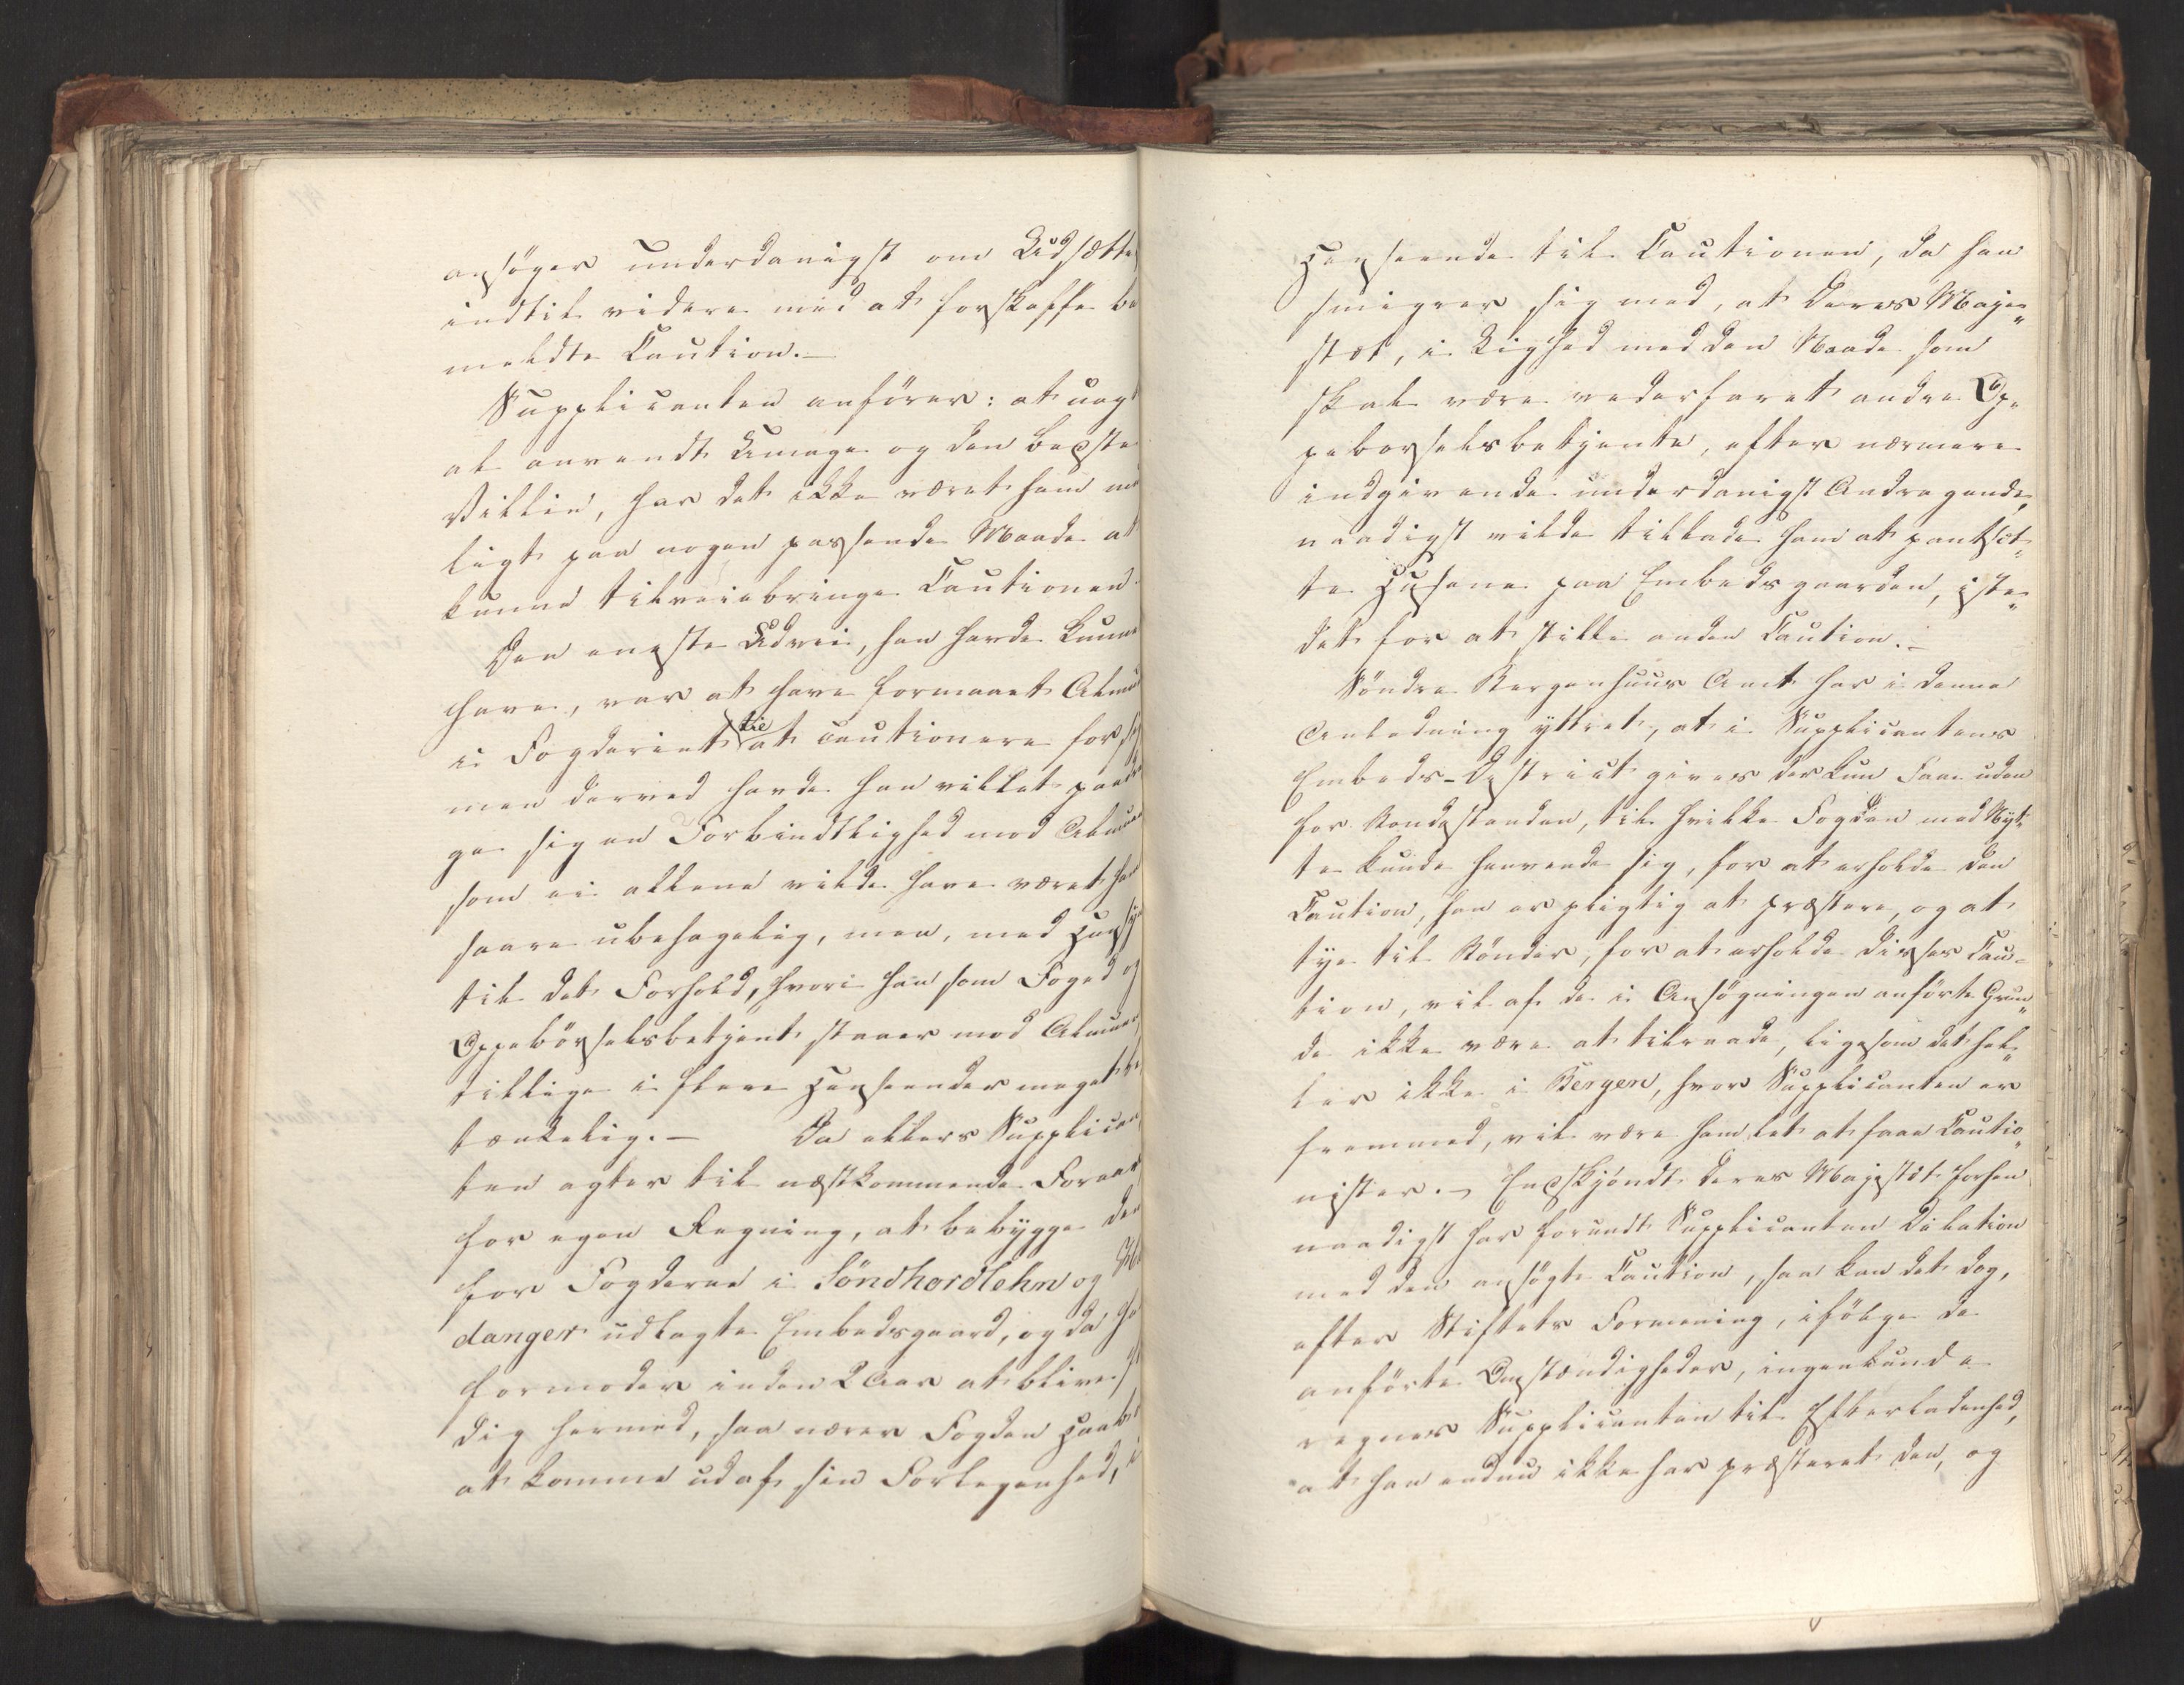 ansöger underdanigst om Udsætte
indtil videre med at forskaffe be
meldte Caution.—
Supplicanten anförer: at uagt
al anvendt Umage og den bedste
Villie, har det ikke været ham mu
ligt paa nogen passende Maade at
kunne tilveiebringe Cautionen.
Den eneste Udvei, han havde kunne
have, var at have formaaet Almu
i Fogderiet til at cautionere for sig
men derved havde han villet paadra
ge sig en Forbindtlighed mod Almue
som ei allene vilde have været ham
saare ubehagelig, men, med Hensyn
til det Forhold, hvori han som Foged og
Oppebörselsbetjent staaer mod Almuen
tillige i flere Henseender meget be
tænkelig.— Da ellers Supplican
ten agter til næstkommende Foraar,
for egen Regning, at bebygge den
for Fogderne i Söndhordlehn og Ha
danger udlagte Embedsgaard, og da ha
formoder inden 2 Aar at blive fær
dig hermed, saa nærer Fogden Haab
at komme ud af sin Forlegenhed, i
Henseende til Cautionen, da han
smigrer sig med, at Deres Maje„
stæt, i Lighed med den Naade som
skal være vederfaret andre Op„
peborselsbetjente, efter nærmere
indgivende underdanigst Andragende,
naadigst vilde tillade ham at pantsæt„
te Husene paa Embedsgaarden, iste„
det for at stille anden Caution.—
Söndre Bergenhuus Amt har i denne
Anledning yttret, at i Supplicantens
Embeds-Distrikt gives der kun Faae uden
for Bondestanden, til hvilke Fogden med Nyt„
te kunde henvende sig, for at erholde den
Caution, han er pligtig at præstere, og at
tye til Bönder, for at erholde disses Cau„
tion, vil af de i Ansögningen anförte Grun„
de ikke være at tilraade, ligesom det hel„
ler ikke i Bergen, hvor Supplicanten er
fremmed, vil være ham let at faae Cautio„
nister.— Endskjöndt Deres Majestæt forhen
naadigst har forundt Supplicanten Dilation
med den ansögte Caution, saa kan det dog,
efter Stiftets Formening, ifölge de
anförte Omstændigheder, ingenlunde
regnes Supplicanten til Efterladenhed,
at han endnu ikke har præsteret den, og